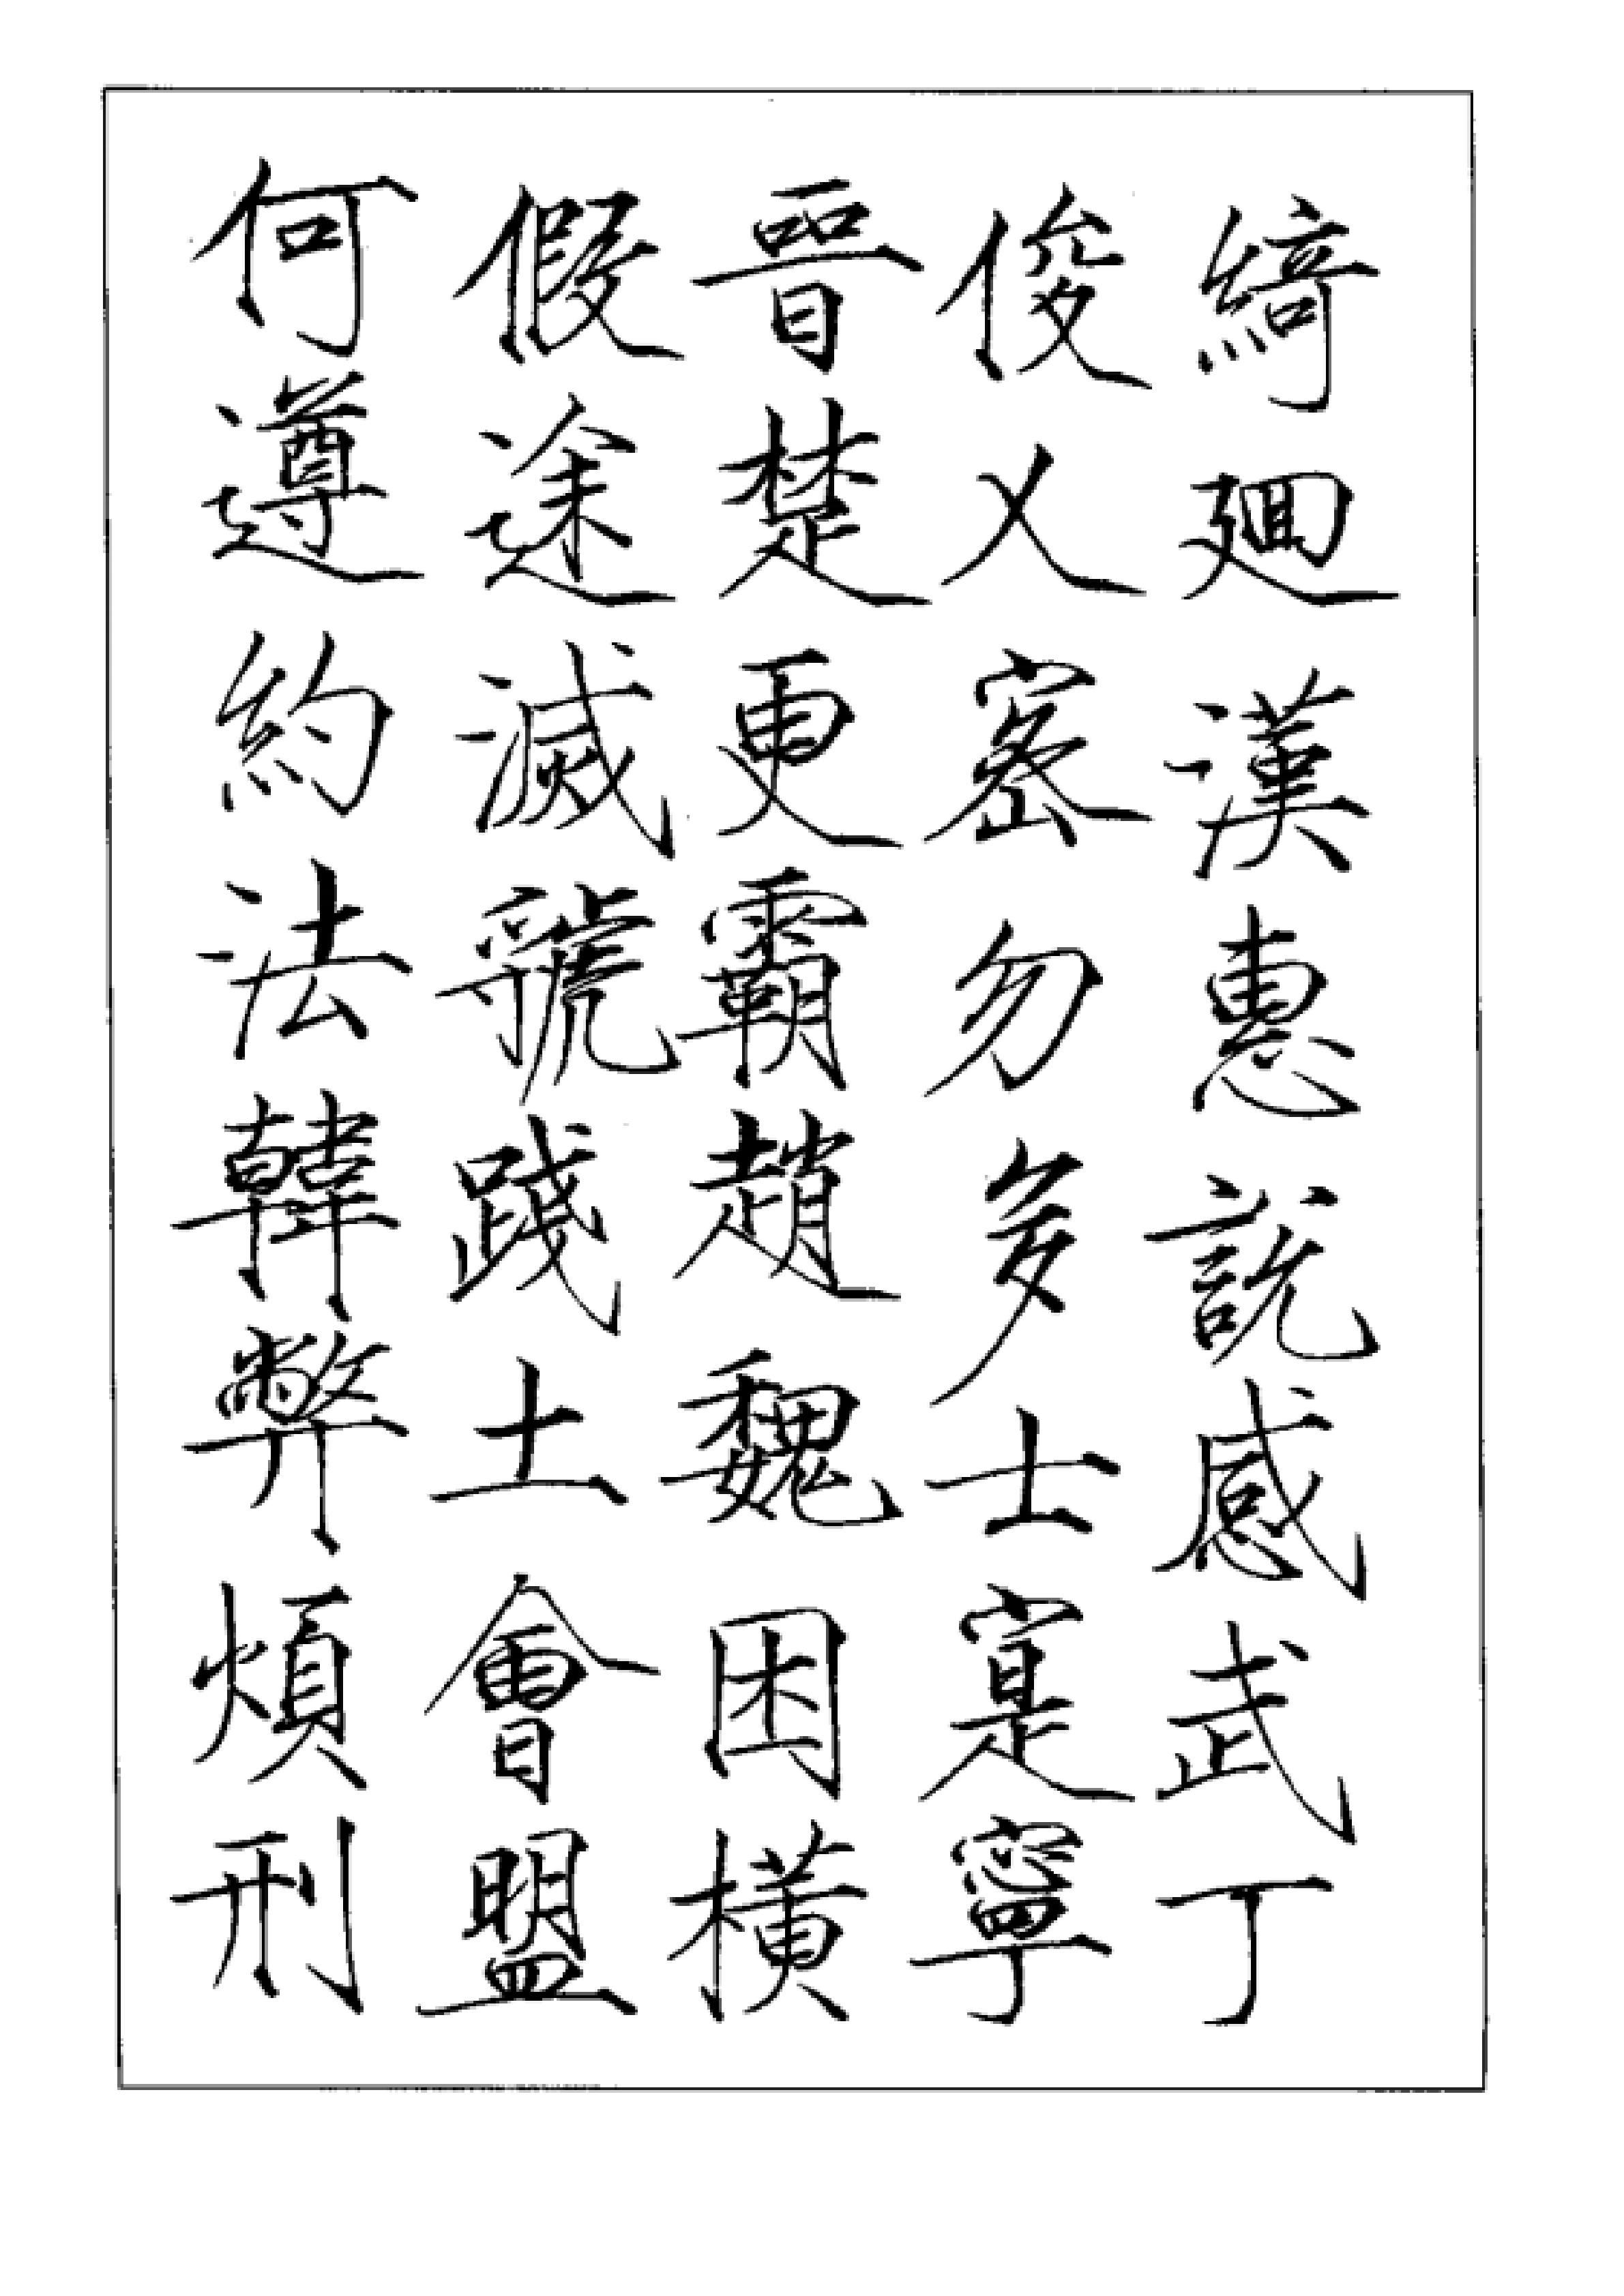 綺迴漢惠說感武丁
俊乂密勿多士寔寧
晉楚更霸趙魏困橫
假途滅虢踐土會盟
何遵約法韓弊煩刑